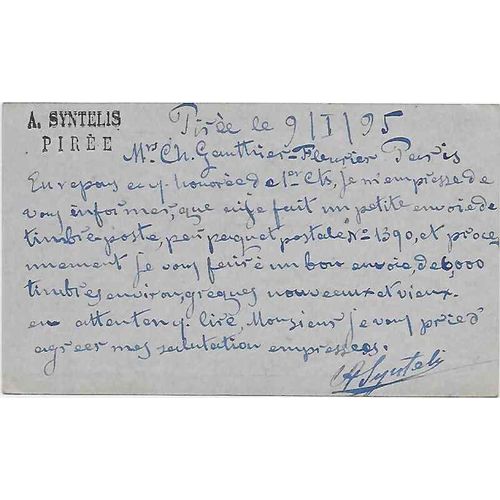 A. SYNTELIS
PIRÉE
Pirée le 9/I/95
Mr. Ch. Gauthier-Fleurier Paris
En repons en v. honorée de 1er Ct, Je m'empresse de
vous informer, que ai fait un petite envoie de
timbre poste, per paquet postale No 1390, et proce
nnement Je vous faire un bon envoie, de 6,000
timbres environs, greques nouveeux et vieux.
en attenten v. lire, Monsieur Je vous pried
agréer mes salutation empressées.
A Syntelis